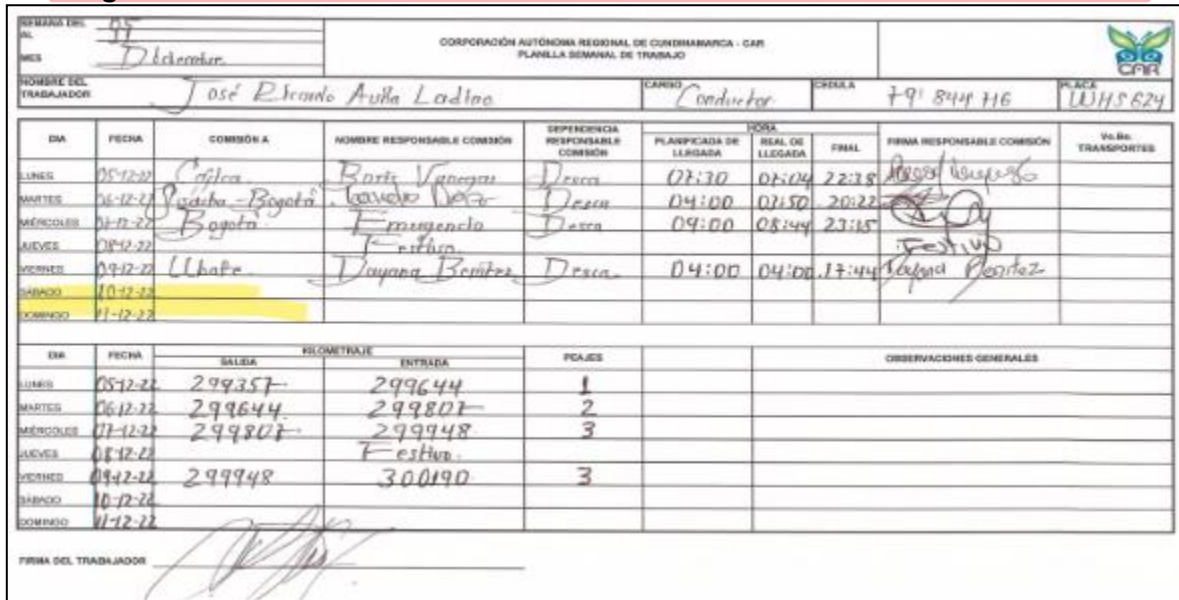 SEMANA DEL 05
AL 11
MES Diciembre
CORPORACIÓN AUTÓNOMA REGIONAL DE CUNDINAMARCA - CAR
PLANILLA SEMANAL DE TRABAJO
CAR
NOMBRE DEL TRABAJADOR José Ricardo Avila Ladino CARGO Conductor CEDULA 79'844716 PLACA
DIA FECHA COMISIÓN A NOMBRE RESPONSABLE COMISIÓN DEPENDENCIA RESPONSABLE COMISIÓN HORA PLANIFICADA DE LLEGADA REAL DE LLEGADA FINAL FIRMA RESPONSABLE COMISIÓN Vo.Bo. TRANSPORTES
LUNES 05-12-22 Cajica Boris Vanegas Desca 07:30 07:04 22:38
MARTES 06-12-22 Soacha - Bogotá Desca 04:00 20:22
MIÉRCOLES 07-12-22 Bogotá Emergencia Desca 09:00 08:44 23:15
JUEVES 08-12-22 Festivo Festivo
VIERNES 09-12-22 Ubate Dayana Benitez Desca 04:00 04:00 17:44 Dayana Benitez
SÁBADO 10-12-22
DOMINGO 11-12-22
DIA FECHA KILOMETRAJE SALIDA ENTRADA PEAJES OBSERVACIONES GENERALES
LUNES 05-12-22 299357 299644 1
MARTES 06-12-22 299644 299807 2
MIÉRCOLES 07-12-22 299807 299948 3
JUEVES 08-12-22 Festivo.
VIERNES 09-12-22 299948 300190 3
SÁBADO 10-12-22
DOMINGO 11-12-22
FIRMA DEL TRABAJADOR